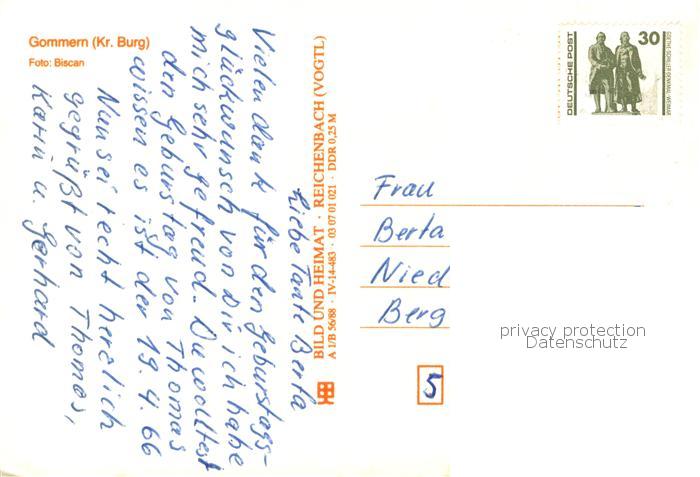 Gommern (Kr. Burg)
Foto: Biscan
Liebe Tante Berta
Vielen dank für den Geburstags-
glückwunsch von Dir ich habe
mich sehr gefreud. Du wolltest
den Geburstag von Thomas
wissen es ist der 19.4.66
Nun sei recht herzlich
gegrüßt von Thomas,
Karin u. Gerhard
BILD UND HEIMAT · REICHENBACH (VOGTL)
A 1/B 56/88 · IV-14-483 · 03 07 01 021 · DDR 0,25 M
DEUTSCHE POST
30
GOETHE-SCHILLER-DENKMAL · WEIMAR
Frau
Berta
Nied
Berg
5
privacy protection
Datenschutz